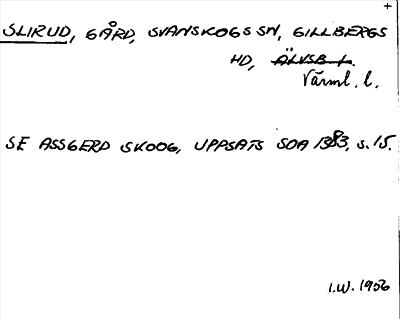 +
SLIRUD, GÅRD, SVANSKOGS SN, GILLBERGS
HD, ÄLVSB. L.
Värml. l.
SE ASSGERD SKOOG, UPPSATS SOA 1383, s. 15.
I.W. 1956